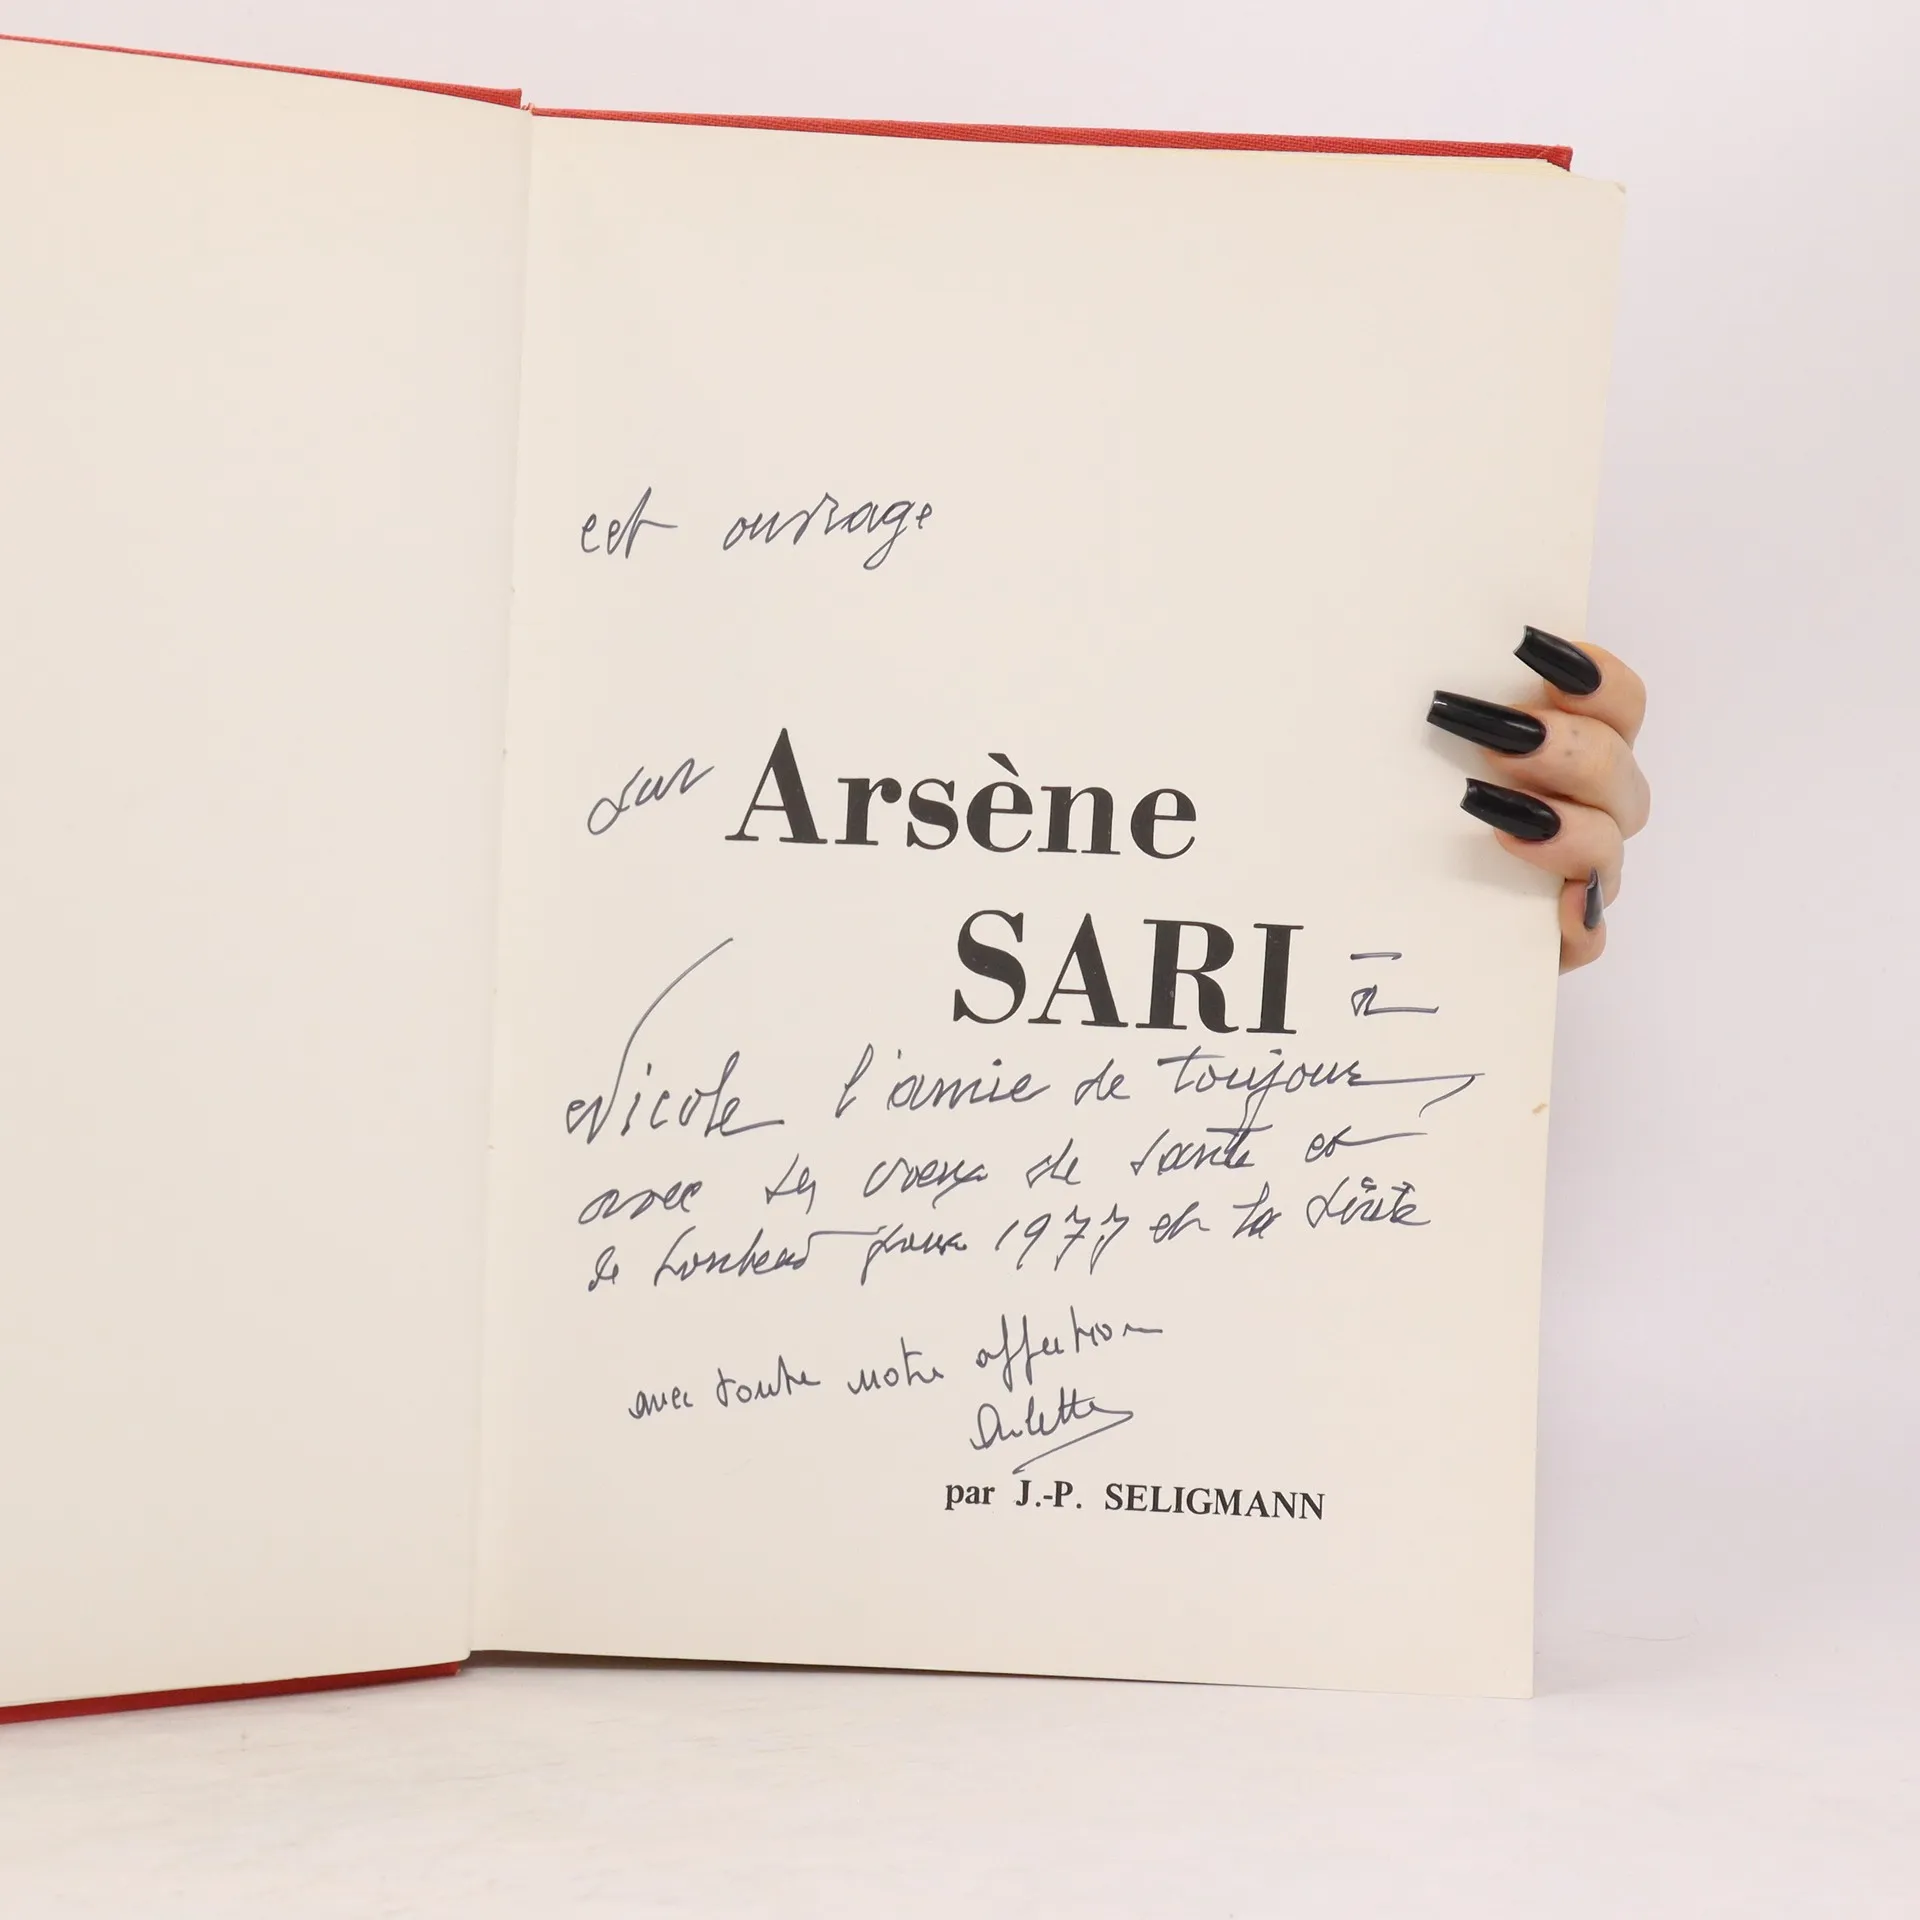 cet ouvrage
sur Arsène
SARI - à
Nicole l'amie de toujours
avec les voeux de santé et
de bonheur pour 1977 et la suite
avec toute notre affection
par J.-P. SELIGMANN